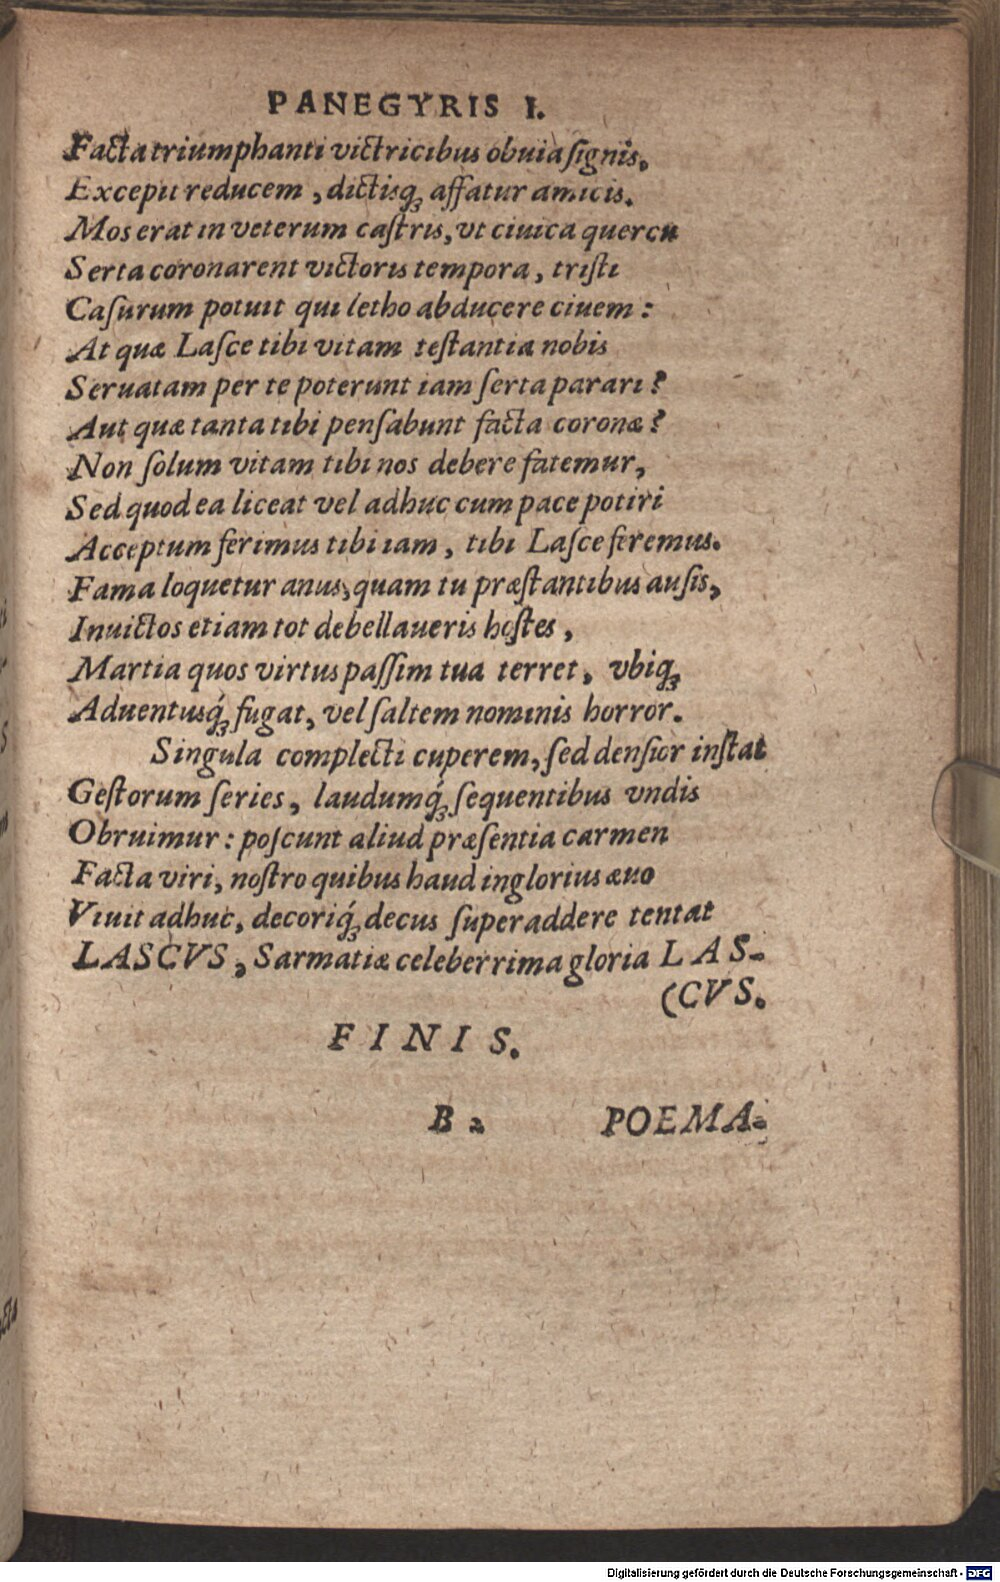 PANEGYRIS I.
Facta triumphanti victricibus obuia signis.
Excepit reducem, dictisq́ꝫ affatur amicis.
Mos erat in veterum castris, vt ciuica quercu
Serta coronarent victoris tempora, tristi
Casurum potuit qui letho abducere ciuem:
At quæ Lasce tibi vitam testantia nobis
Seruatam per te poterunt iam serta parari?
Aut quæ tanta tibi pensabunt facta coronæ?
Non solum vitam tibi nos debere fatemur,
Sed quod ea liceat vel adhuc cum pace potiri
Acceptum ferimus tibi iam, tibi Lasce feremus.
Fama loquetur anus, quam tu præstantibus ausis,
Inuictos etiam tot debellaueris hostes,
Martia quos virtus passim tua terret, vbiqꝫ
Aduentusq́ꝫ fugat, vel saltem nominis horror.
Singula complecti cuperem, sed densior instat
Gestorum series, laudumq́ꝫ sequentibus vndis
Obruimur: poscunt aliud præsentia carmen
Facta viri, nostro quibus haud inglorius æuo
Viuit adhuc, decoriq́ꝫ decus superaddere tentat
LASCVS, Sarmatiæ celeberrima gloria LAS-
(CVS.
FINIS.
B 2 POEMA-
Digitalisierung gefördert durch die Deutsche Forschungsgemeinschaft - DFG